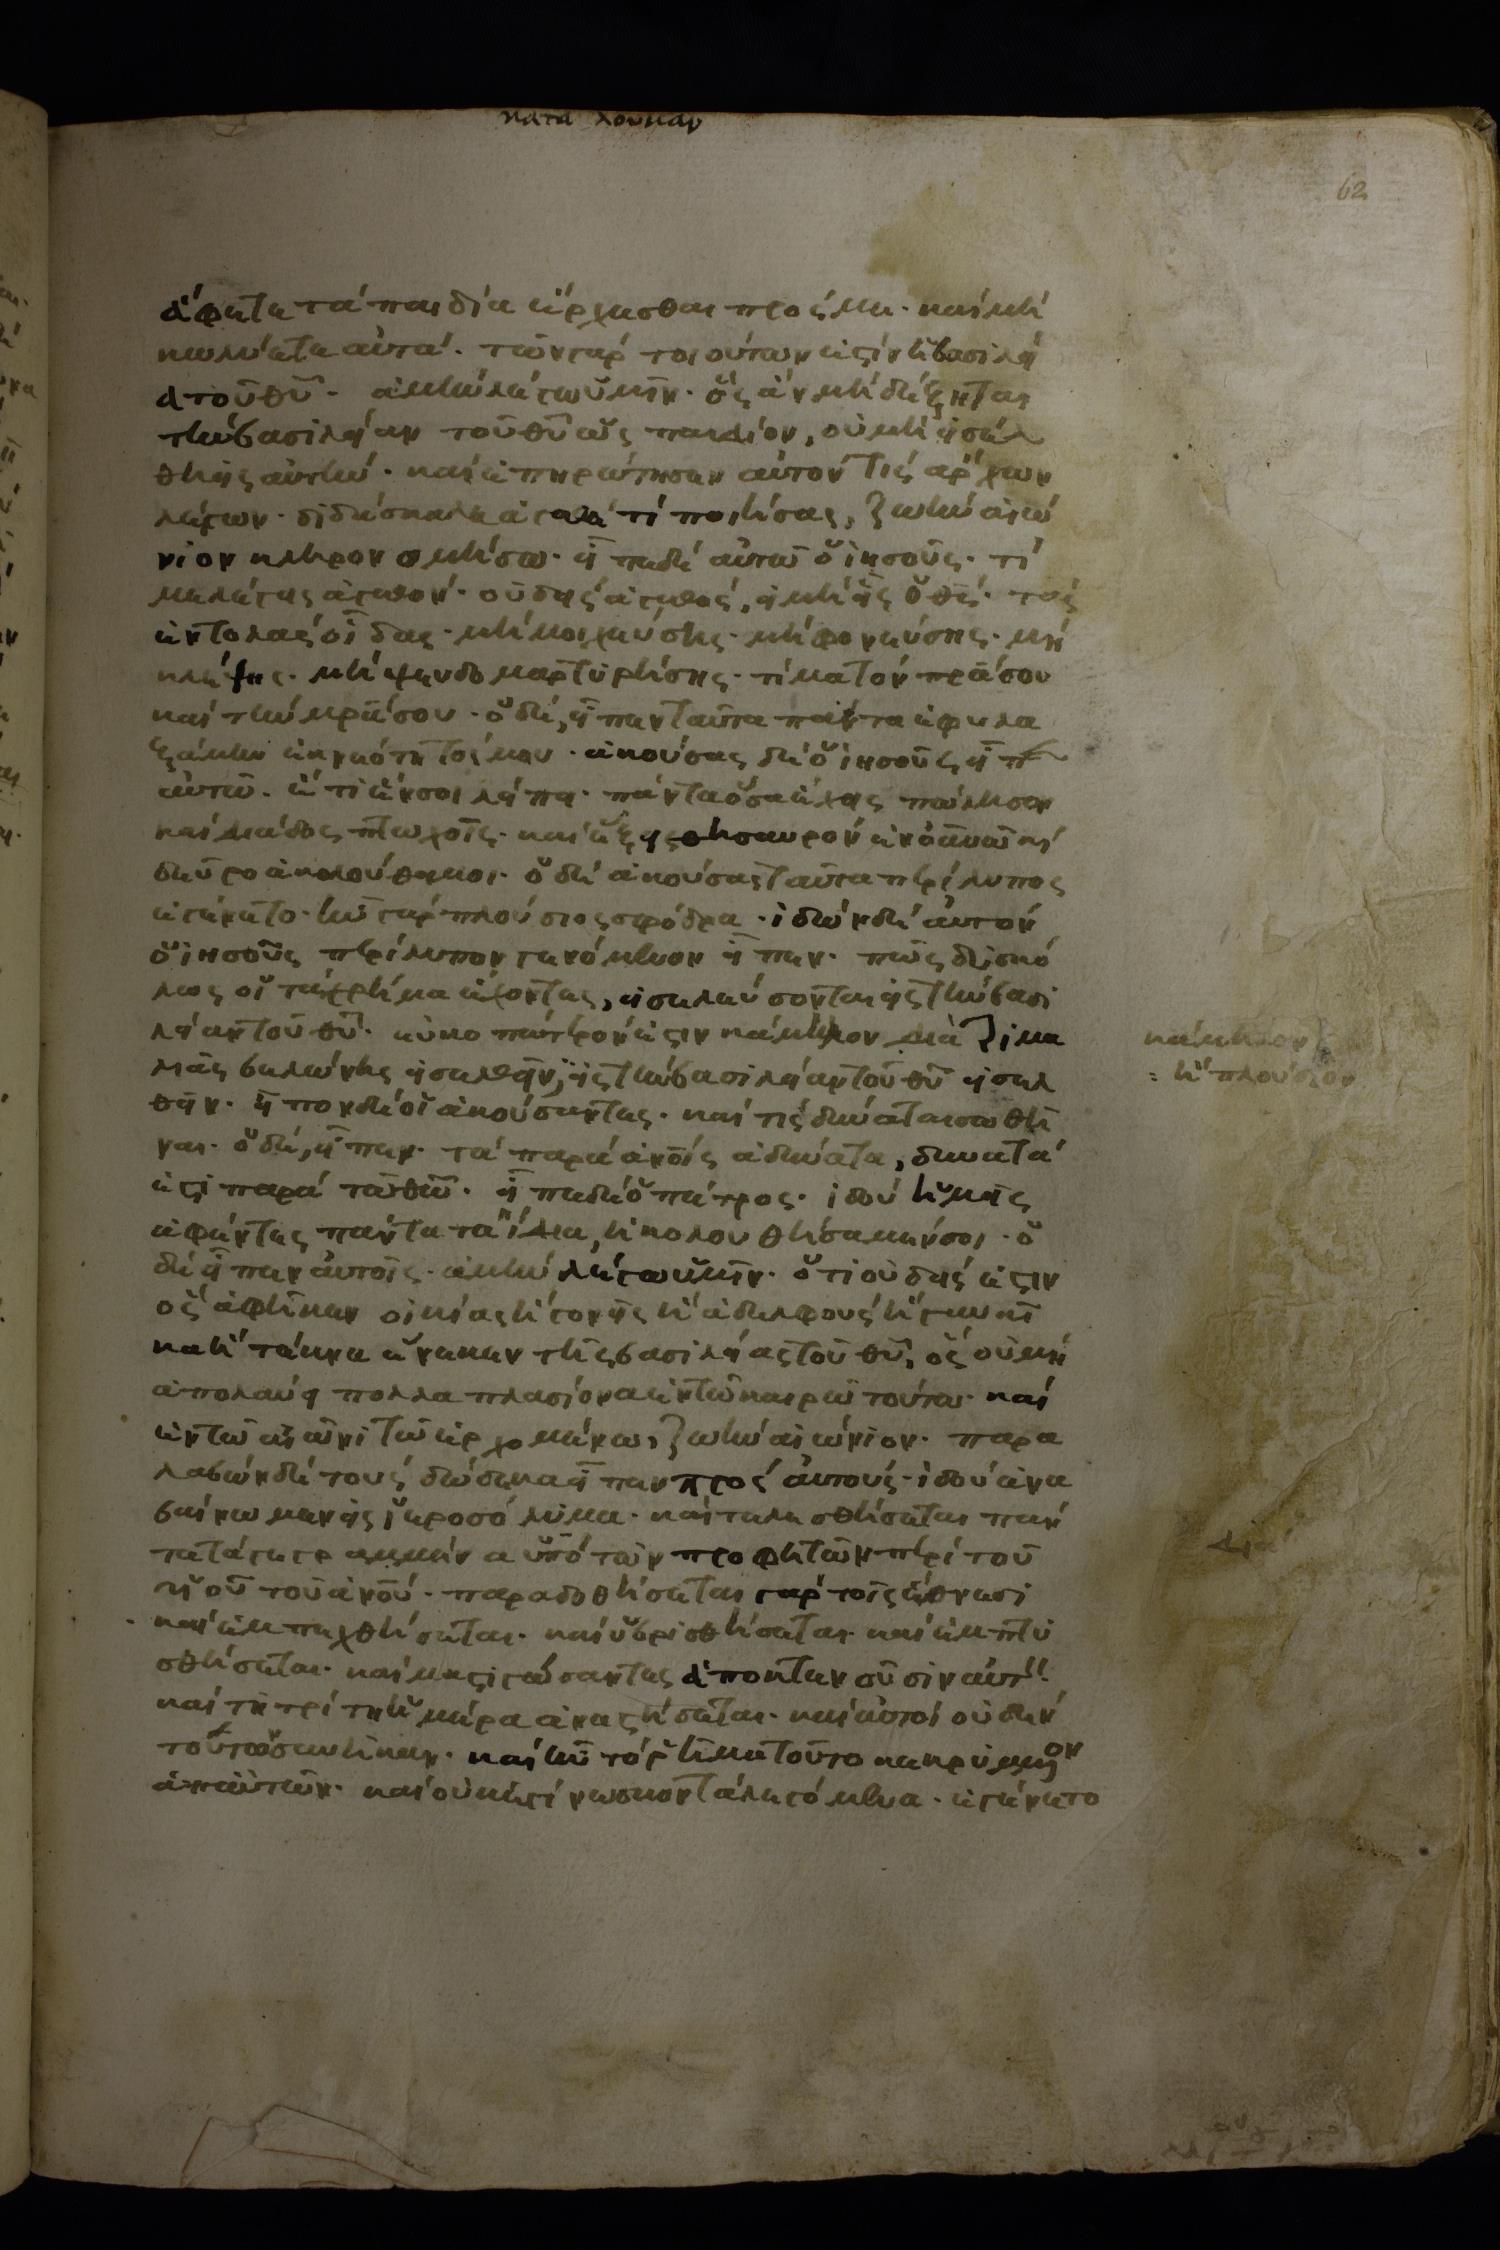 κατα λουκαν
62
ἄφετε τὰ παιδία ἔρχεσθαι προς με· καὶ μὴ
κωλύετε αὐτά· τῶν γὰρ τοιούτων ἐςὶν ἡ βασιλεί
α τοῦ θῦ· ἀμὴν λέγω ὑμῖν· ὃς ἂν μὴ δέξηται
τὴν βασιλείαν τοῦ θῦ ὡς παιδίον, οὐ μὴ εἰσέλ
θη εἰς αὐτήν· καὶ ἐπηρώτησεν αὐτόν τίς ἄρχων
λέγων· διδάσκαλε ἀγαθέ τί ποιήσας, ζωὴν αἰώ
νιον κληρονομήσω· εἶπε δὲ αὐτῶ ὁ ἰησοῦς· τί
με λέγεις ἀγαθόν· οὐδεὶς ἀγαθός, εἰ μὴ εἷς ὁ θς· τὰς
ἐντολὰς οἶδας· μὴ μοιχεύσης· μὴ φονεύσης· μὴ
κλέψης· μὴ ψευδομαρτυρήσης· τίμα τὸν πρασου
καὶ τὴν μρασου· ὁ δὲ, εἶπεν ταῦτα πάντα ἐφυλα
ξάμην ἐκ νεότητός μου· ἀκούσας δὲ ὁ ἰησοῦς εἶπ
αὐτῶ· ἔτι ἕν σοι λείπει· πάντα ὅσα ἔχεις πώλησον
καὶ διάδος πτωχοῖς· καὶ ἕξεις θησαυρὸν ἐν οὐνῶ καὶ
δεῦρο ἀκολούθει μοι· ὁ δὲ ἀκούσας ταῦτα περίλυπος
ἐγένετο· ἦν γὰρ πλούσιος σφόδρα· ἰδὼν δὲ αὐτὸν
ὁ ἰησοῦς περίλυπον γενόμενον εἶπεν· πῶς δυσκό
λως οἱ τὰ χρήματα ἔχοντες, εἰσελεύσονται εἰς τὴν βασι
λείαν τοῦ θῦ· εὐκοπώτερόν ἐςιν κάμηλον διὰ τρυμα
λιᾶς βελώνης εἰσελθεῖν, εἰς τὴν βασιλείαν τοῦ θῦ εἰσελ
θεῖν· εἶπον δὲ οἱ ἀκούσαντες· καὶ τίς δύναται σωθῆ
ναι· ὁ δὲ, εἶπεν· τὰ παρὰ ἀνοῖς ἀδύνατα, δυνατά
ἐςι παρὰ τῶ θῶ· εἶπε δὲ ὁ πέτρος· ἰδοὺ ἡμεῖς
ἀφέντες πάντα τὰ ἴδια, ἠκολουθήσαμέν σοι· ὁ
δὲ εἶπεν αὐτοῖς· ἀμὴν λέγω ὑμῖν· ὅτι οὐδείς ἐςιν
ὃς ἀφῆκεν οἰκίας ἢ γονεῖς ἢ ἀδελφοὺς ἢ γυναῖ
κα ἢ τέκνα ἕνεκεν τῆς βασιλείας τοῦ θῦ, ὃς οὐ μὴ
ἀπολαύη πολλαπλασίονα ἐν τῶ καιρῶ τούτω· καὶ
ἐν τῶ αἰῶνι τῶ ἐρχομένω, ζωὴν αἰώνιον· παρα
λαβὼν δὲ τοὺς δώδεκα εἶπεν πρὸς αὐτούς· ἰδοὺ ἀνα
βαίνωμεν εἰς ἱεροσόλυμα· καὶ τελεσθήσεται πάν
τα τὰ γεγραμμένα ὑπὸ τῶν προφητῶν περὶ τοῦ
υἱοῦ τοῦ ἀνοῦ· παραδοθήσεται γὰρ τοῖς ἔθνεσι
καὶ ἐμπεχθήσεται· καὶ ὑβρισθήσεται· καὶ ἐμπτυ
σθήσεται· καὶ μαςιγώσαντες ἀποκτενοῦσιν αὐτ
καὶ τῆ τρίτη ἡμέρα ἀναςήσεται· καὶ αὐτοὶ οὐδὲν
τούτων συνῆκαν· καὶ ἦν τὸ ῥῆμα τοῦτο κεκρυμμένον
ἀπ αὐτῶν· καὶ οὐκ ἐγίνωσκον τὰ λεγόμενα· ἐγένετο
κάμηλον
ἢ πλούσιον
διά